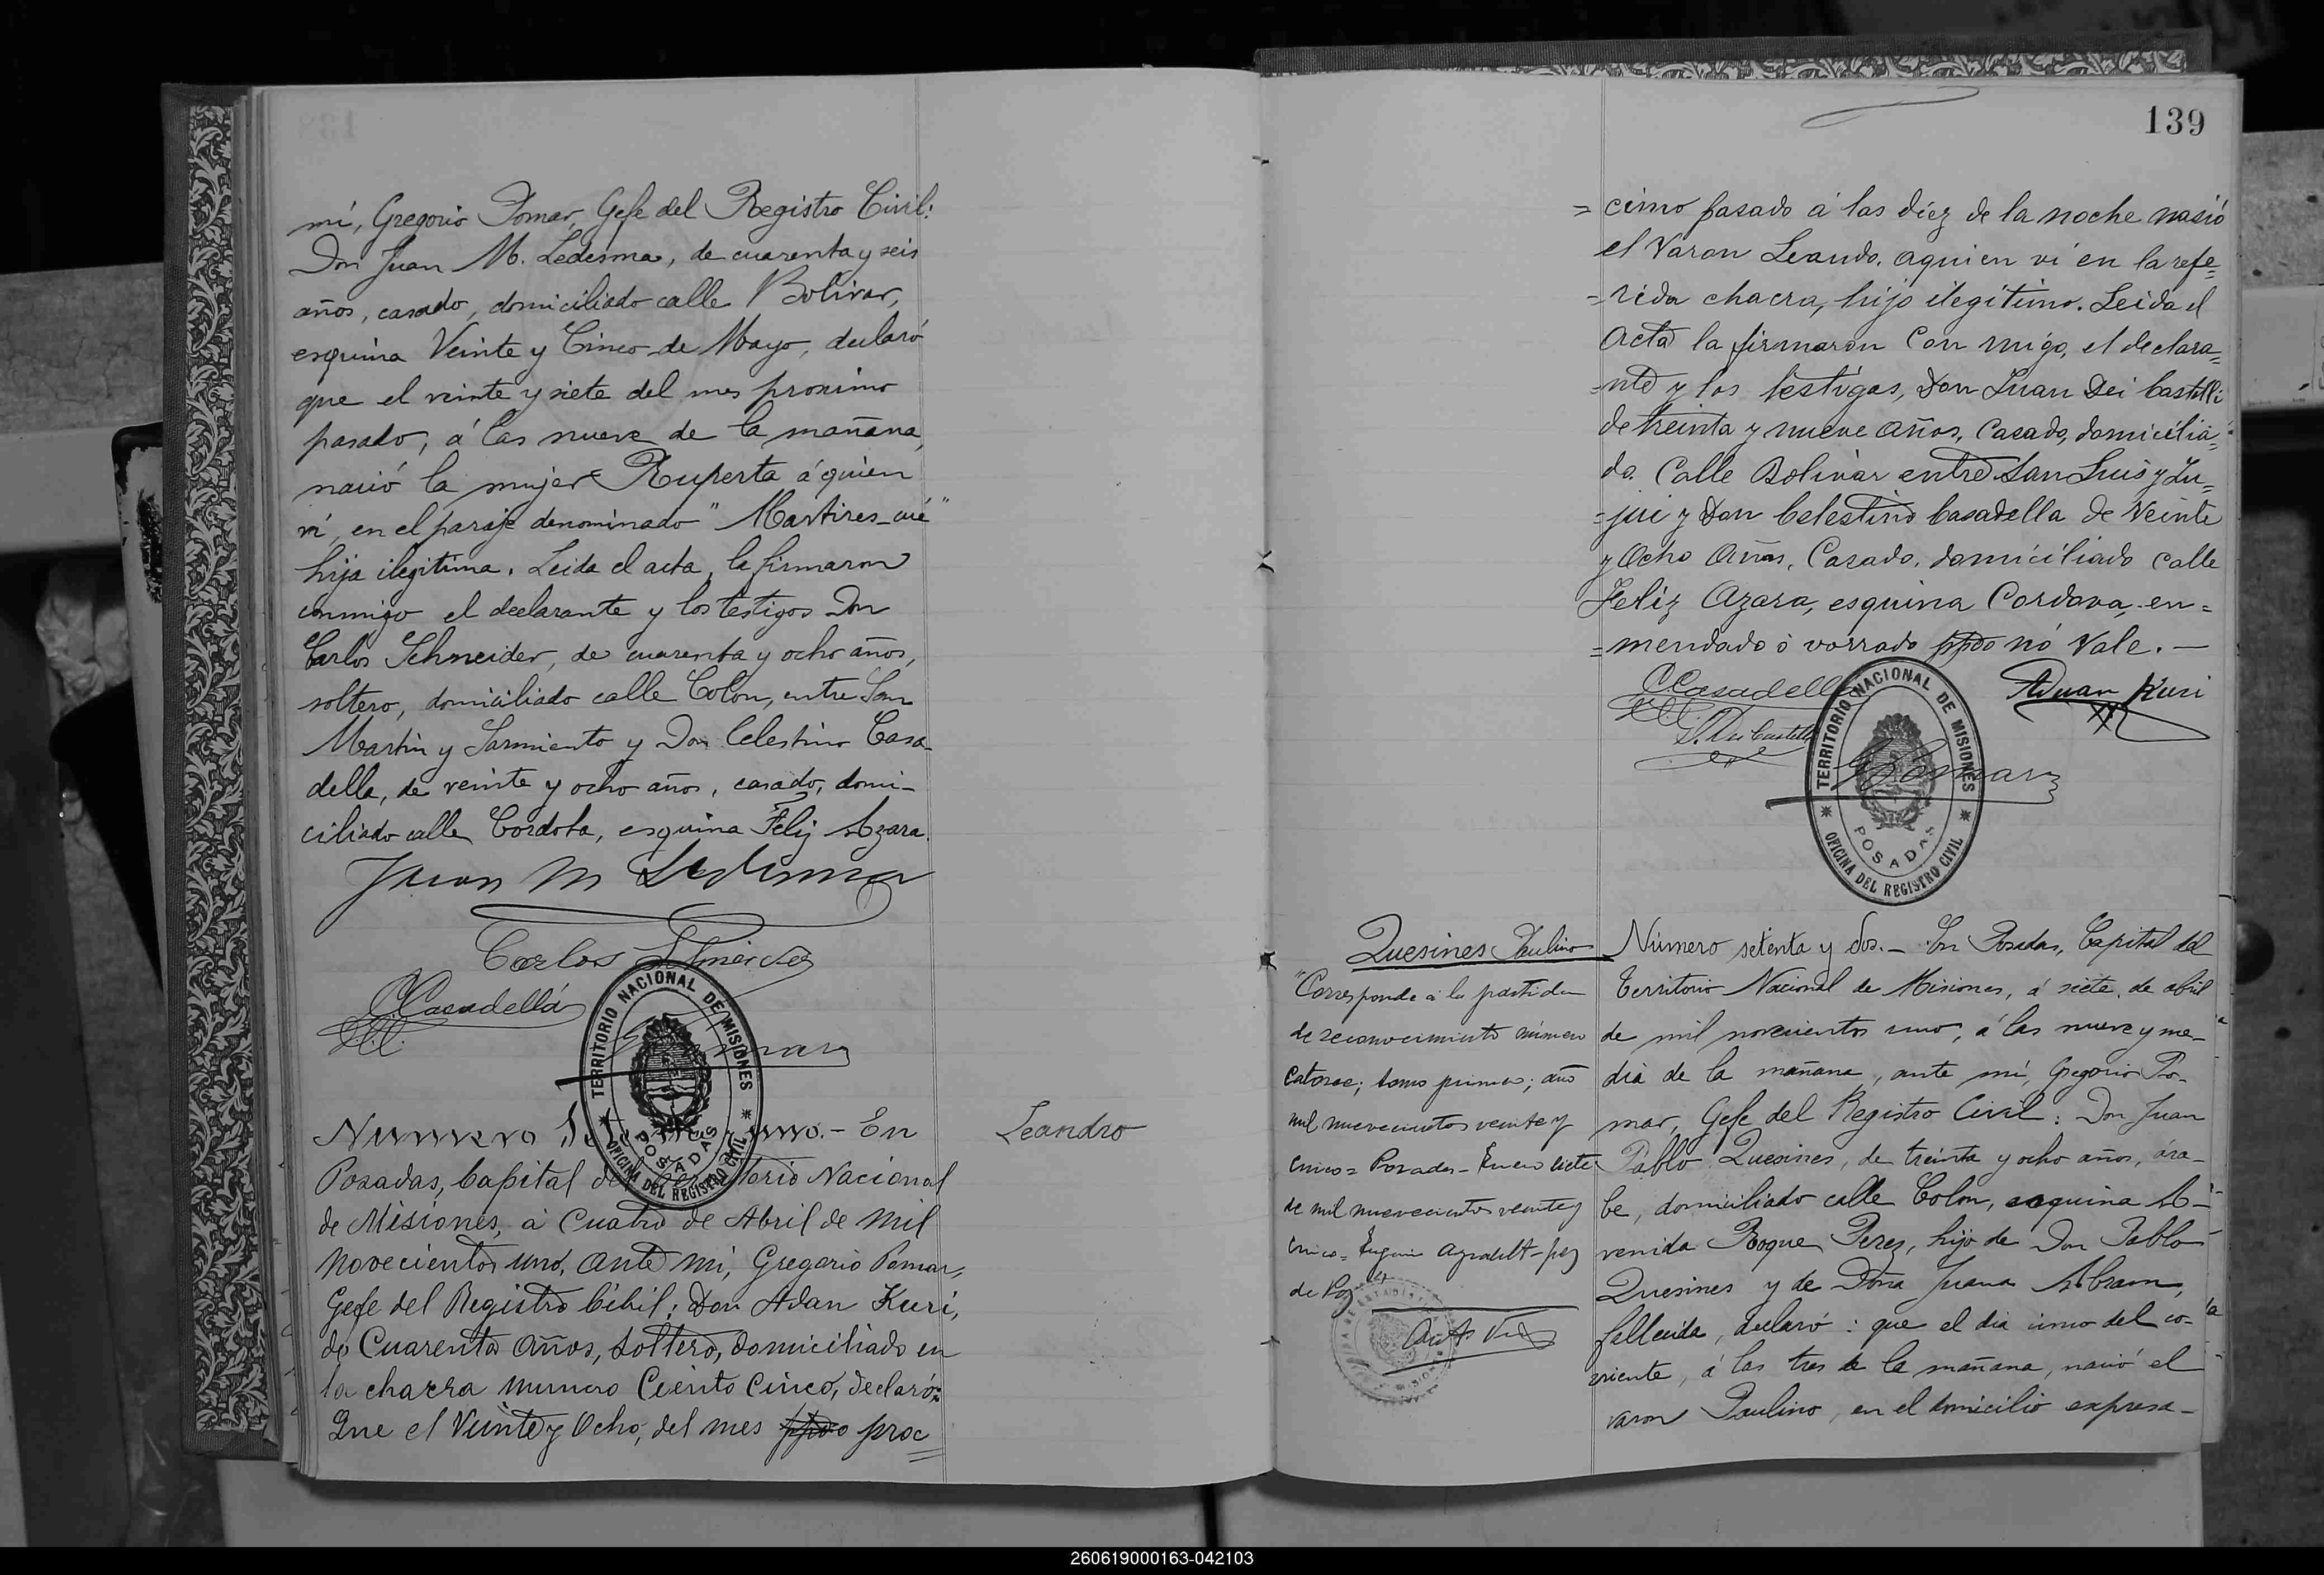 mí, Gregorio Pomar, Gefe del Registro Civil:
Don Juan M. Ledesma, de cuarenta y seis
años, casado, domiciliado calle Bolivar,
esquina Veinte y Cinco de Mayo, declaró
que el veinte y siete del mes proximo
pasado, á las nueve de la mañana,
nació la mujer Ruperta á quien
ví, en el paraje denominado "Martires-cué"
hija ilegitima. Leida el acta, la firmaron
conmigo el declarante y los testigos Don
Carlos Schneider, de cuarenta y ocho años,
soltero, domiciliado calle Colon, entre San
Martin y Sarmiento y Don Celestino Casa-
della, de veinte y ocho años, casado, domi-
ciliado calle Cordoba, esquina Feliz Azara.
Juan M Ledesma
Carlos Schneider
CCasadella
TERRITORIO NACIONAL DE MISIONES
POSADAS
OFICINA DEL REGISTRO CIVIL
Leandro
Numero Setenta y uno.- En
Posadas, Capital del Territorio Nacional
de Misiones, á Cuatro de Abril de Mil
novecientos uno, ante mi, Gregorio Pomar,
Gefe del Registro Cibil; Don Adan Kuri,
de Cuarenta años, soltero, domiciliado en
la chacra numero Ciento Cinco, declaró:
Que el Veinte y Ocho, del mes ppdo proc=
139
= cimo pasado á las diez de la noche nasió
el Varon Leando. aquien ví en la refe=
=rida chacra, hijo ilegitimo. Leida el
acta la firmaron Con migo, el declara=
=nte y los testigos, Don Juan Dei Castelli
de treinta y nueve años, Casado, domicilia=
do. Calle Bolivar entre San Luis y Ju=
=jui y Don Celestino Casadella de Veinte
y Ocho años, Casado, domiciliado calle
Feliz Azara, esquina Cordova, en=
=mendado ó vorrado ppdo nó Vale.—
CCasadella
Aduan Kuri
J. Dei Castelli
GPomar
TERRITORIO NACIONAL DE MISIONES
POSADAS
OFICINA DEL REGISTRO CIVIL
Quesines Paulino
"Corresponde á la partida
de reconocimiento número
catorce; tomo primero; año
mil novecientos veinte y
cinco= Posadas- Enero siete
de mil novecientos veinte y
cinco=
de Paz
Número setenta y dos.- En Posadas, Capital del
Territorio Nacional de Misiones, á siete de abril
de mil novecientos uno, á las nueve y me-
dia de la mañana, ante mí, Gregorio Po-
mar, Gefe del Registro Civil: Don Juan
Pablo Quesines, de treinta y ocho años, ára-
be, domiciliado calle Colon, esquina A-
venida Roque Perez, hijo de Don Pablo
Quesines y de Doña Juana Abram,
fallecida, declaró: que el dia uno del co-
rriente, á las tres de la mañana, nació el
varon Paulino, en el domicilio expresa-
260619000163-042103